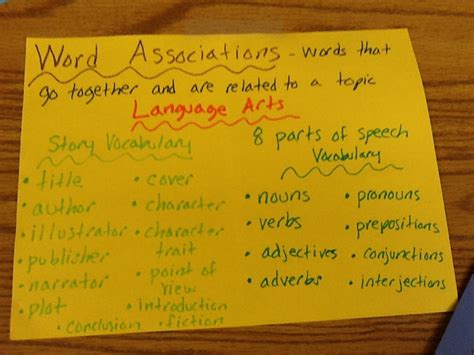 Word Associations - words that
go together and are related to a topic
Language Arts
Story Vocabulary
• title
• author
• illustrator
• publisher
• narrator
• plot
• cover
• character
• character
trait
• point of
view
• Introduction
• Conclusion
• fiction
8 parts of speech
Vocabulary
• nouns
• verbs
• adjectives
• adverbs
• pronouns
• prepositions
• conjunctions
• interjections